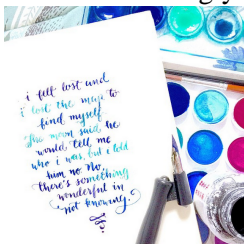 i felt lost and
i lost the map to
find myself
the moon said he
would tell me
who i was, but i told
him no. No,
there's something
wonderful in
not knowing.